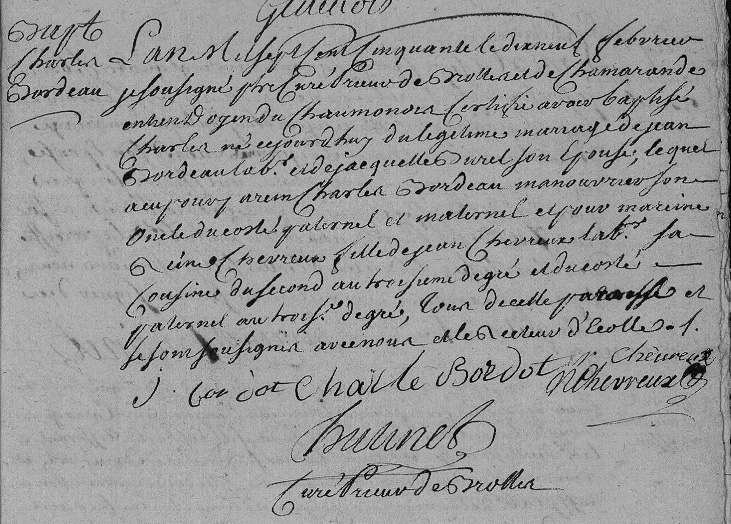 Bapt
Charles
Bordeau
L'an Mil sept Cent Cinquante le dixneuf febvrier
je sousigné ptre Curé Prieur de Brottes et de Chamarande
en ben doyen du Chaumonois Certifie avoir baptisé
Charles né cejourdhuy du legitime mariage de jean
Bordeau lab.r et de jacquelle Burel son Epouse, lequel
a eu pour parein Charles Bordeau manouvrier son
Oncle du costé paternel et maternel et pour mareine
Reine Chevreux fille de jean Chevreux lab.r sa
Cousine du second au troisieme degré et du costé
paternel au trois.e degré, Tous de cette paroisse et
se sont sousignés avec nous et le Recteur d'Ecolle . /.
J Bordot Charlle Bordot N Chevreux Chevreux
Curé Prieur de Brottes